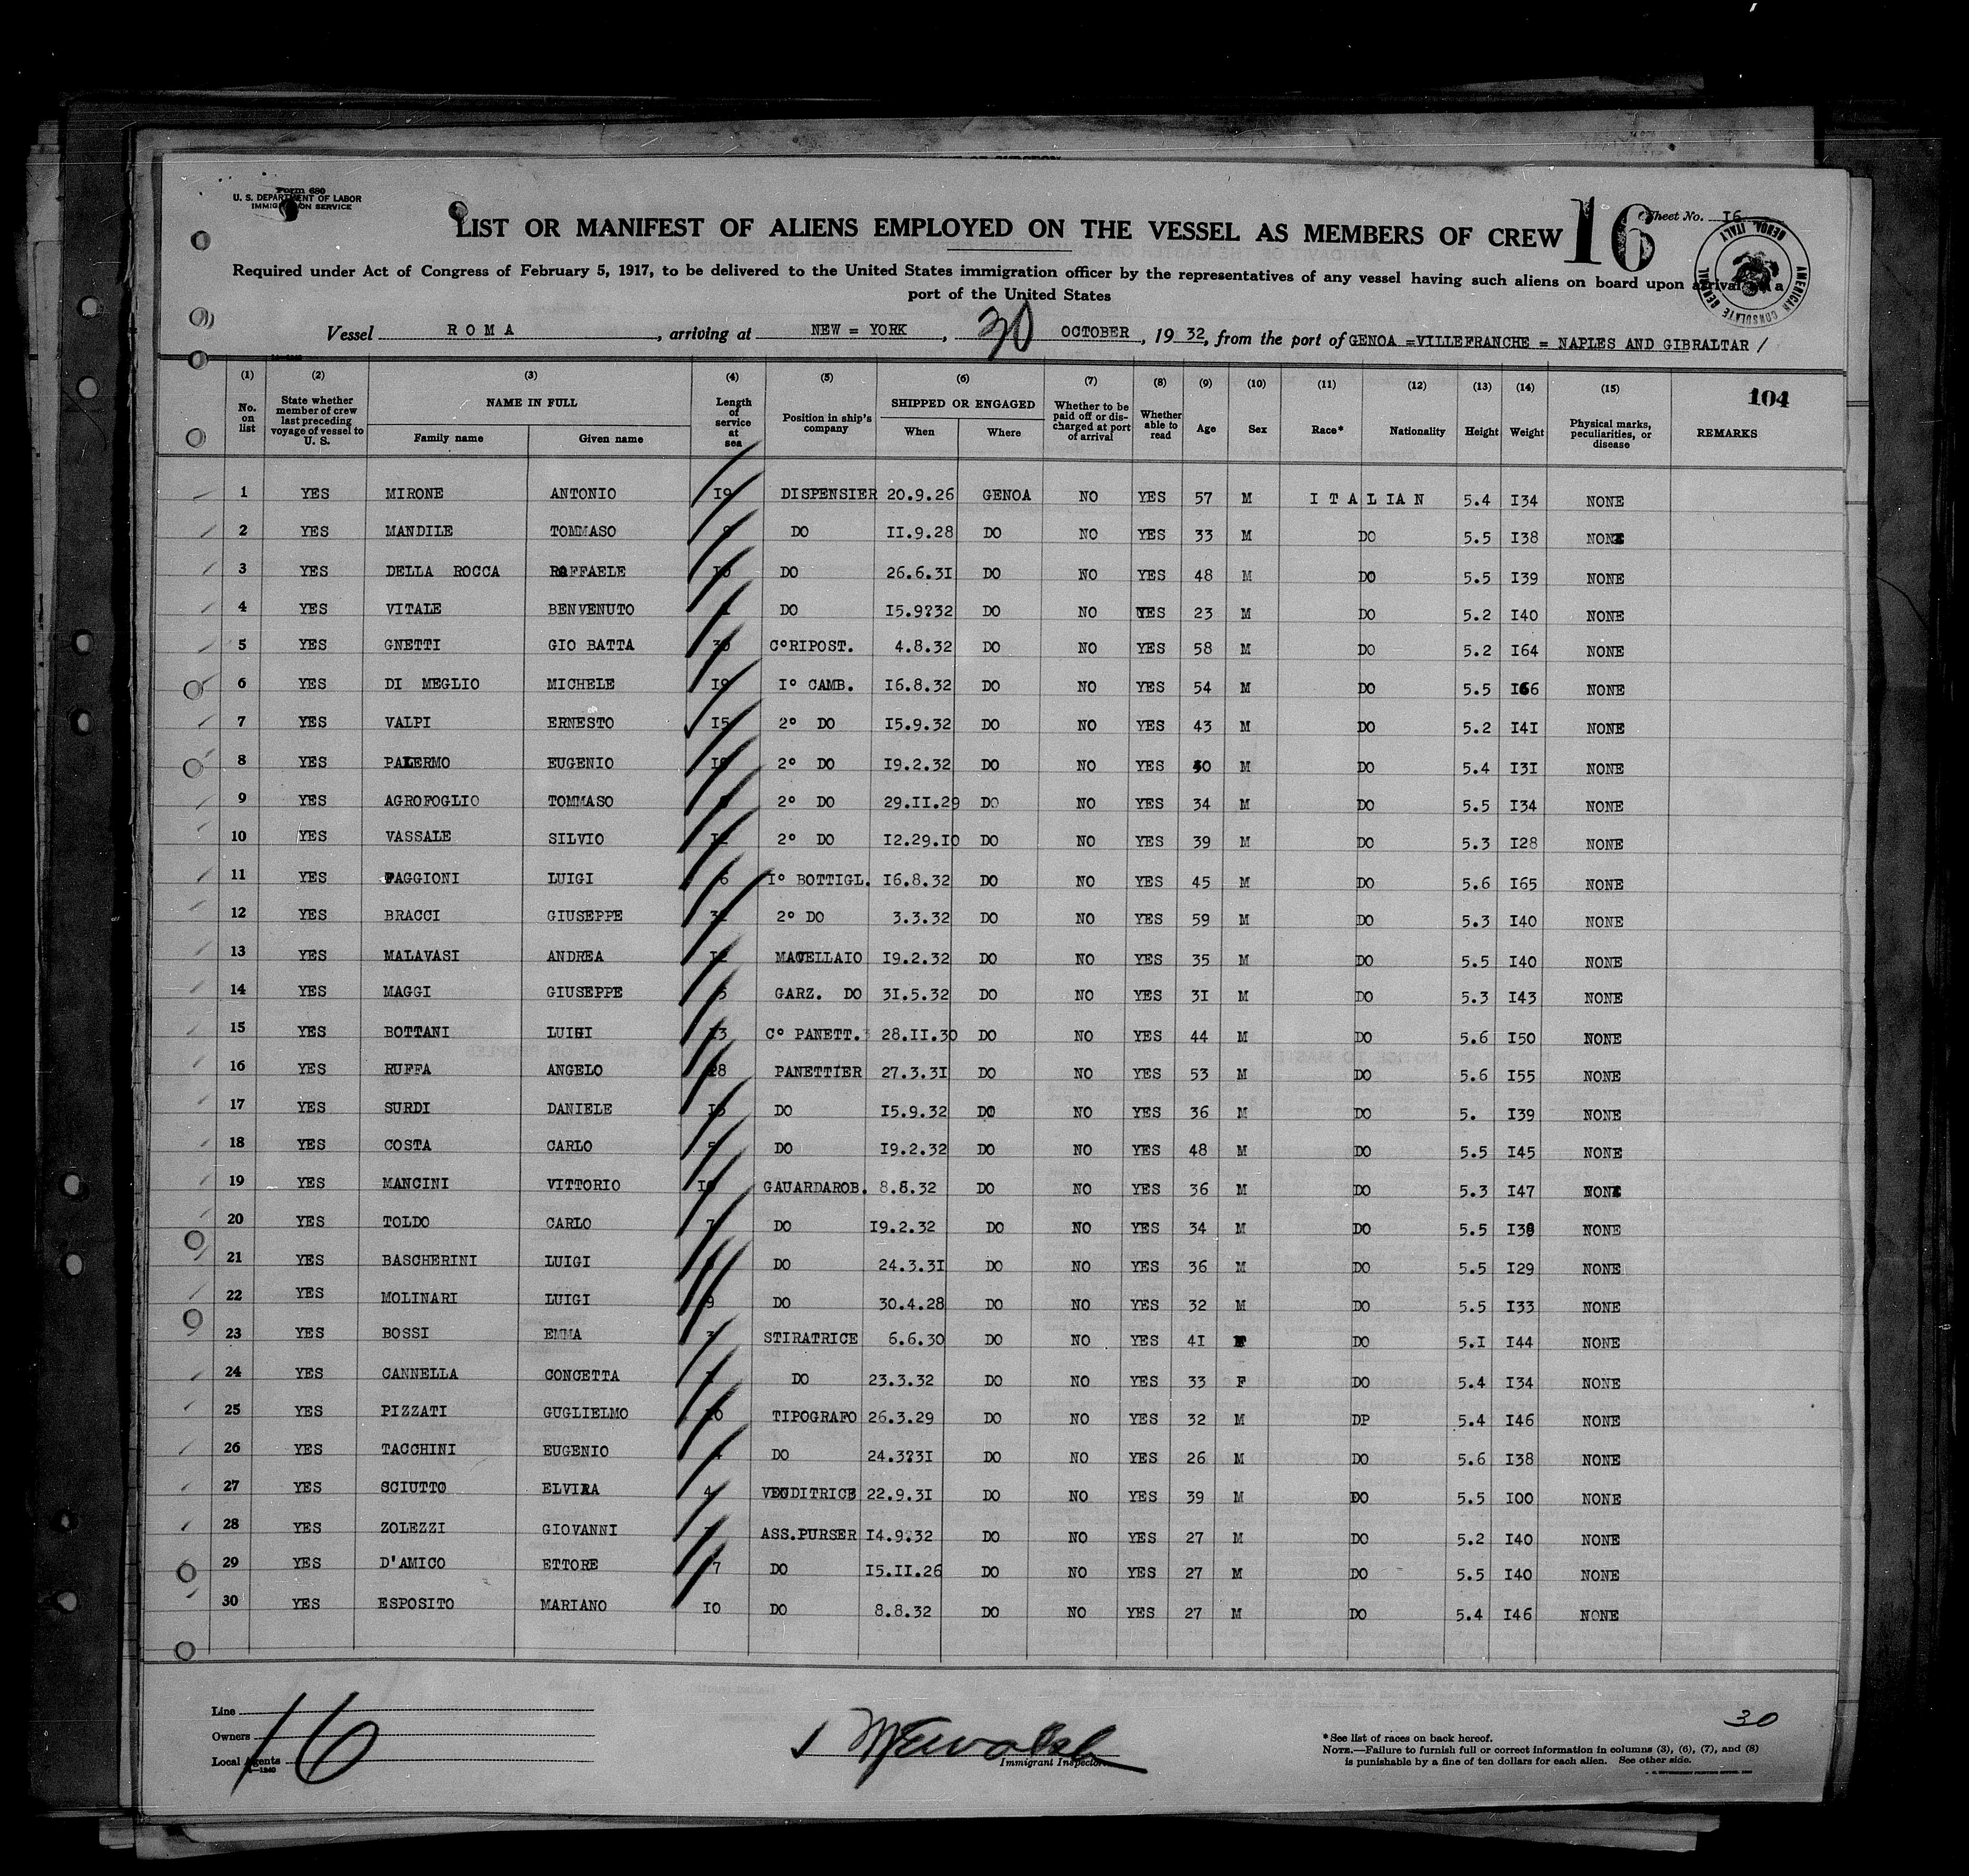 Form 680
U. S. DEPARTMENT OF LABOR
IMMIGRATION SERVICE
LIST OR MANIFEST OF ALIENS EMPLOYED ON THE VESSEL AS MEMBERS OF CREW
16
Sheet No. I6
AMERICAN CONSULATE GENERAL
GENOA, ITALY
Required under Act of Congress of February 5, 1917, to be delivered to the United States immigration officer by the representatives of any vessel having such aliens on board upon arrival at a
port of the United States
Vessel ROMA, arriving at NEW = YORK, 30 OCTOBER, 1932, from the port of GENOA =VILLEFRANCHE = NAPLES AND GIBRALTAR /
(1) (2) (3) (4) (5) (6) (7) (8) (9) (10) (11) (12) (13) (14) (15) 104
No. on list State whether member of crew last preceding voyage of vessel to U. S. NAME IN FULL Family name Given name Length of service at sea Position in ship's company SHIPPED OR ENGAGED When Where Whether to be paid off or discharged at port of arrival Whether able to read Age Sex Race* Nationality Height Weight Physical marks, peculiarities, or disease REMARKS
1 YES MIRONE ANTONIO I9 DISPENSIER 20.9.26 GENOA NO YES 57 M ITALIAN 5.4 I34 NONE
2 YES MANDILE TOMMASO DO II.9.28 DO NO YES 33 M DO 5.5 I38 NONE
3 YES DELLA ROCCA RAFFAELE DO 26.6.3I DO NO YES 48 M DO 5.5 I39 NONE
4 YES VITALE BENVENUTO DO I5.9?32 DO NO YES 23 M DO 5.2 I40 NONE
5 YES GNETTI GIO BATTA 30 C°RIPOST. 4.8.32 DO NO YES 58 M DO 5.2 I64 NONE
6 YES DI MEGLIO MICHELE I9 I° CAMB. I6.8.32 DO NO YES 54 M DO 5.5 I66 NONE
7 YES VALPI ERNESTO I5 2° DO I5.9.32 DO NO YES 43 M DO 5.2 I4I NONE
8 YES PALERMO EUGENIO 2° DO I9.2.32 DO NO YES 50 M DO 5.4 I3I NONE
9 YES AGROFOGLIO TOMMASO 2° DO 29.II.29 DO NO YES 34 M DO 5.5 I34 NONE
10 YES VASSALE SILVIO I2 2° DO I2.29.I0 DO NO YES 39 M DO 5.3 I28 NONE
11 YES FAGGIONI LUIGI 6 I° BOTTIGL. I6.8.32 DO NO YES 45 M DO 5.6 I65 NONE
12 YES BRACCI GIUSEPPE 2° DO 3.3.32 DO NO YES 59 M DO 5.3 I40 NONE
13 YES MALAVASI ANDREA I2 MACELLAIO I9.2.32 DO NO YES 35 M DO 5.5 I40 NONE
14 YES MAGGI GIUSEPPE 5 GARZ. DO 3I.5.32 DO NO YES 3I M DO 5.3 I43 NONE
15 YES BOTTANI LUIGI I3 C° PANETT. 28.II.30 DO NO YES 44 M DO 5.6 I50 NONE
16 YES RUFFA ANGELO 28 PANETTIER 27.3.3I DO NO YES 53 M DO 5.6 I55 NONE
17 YES SURDI DANIELE DO I5.9.32 DO NO YES 36 M DO 5. I39 NONE
18 YES COSTA CARLO 5 DO I9.2.32 DO NO YES 48 M DO 5.5 I45 NONE
19 YES MANCINI VITTORIO GAUARDAROB. 8.8.32 DO NO YES 36 M DO 5.3 I47 NONE
20 YES TOLDO CARLO 7 DO I9.2.32 DO NO YES 34 M DO 5.5 I38 NONE
21 YES BASCHERINI LUIGI DO 24.3.3I DO NO YES 36 M DO 5.5 I29 NONE
22 YES MOLINARI LUIGI 9 DO 30.4.28 DO NO YES 32 M DO 5.5 I33 NONE
23 YES BOSSI EMMA 3 STIRATRICE 6.6.30 DO NO YES 4I F DO 5.I I44 NONE
24 YES CANNELLA CONCETTA DO 23.3.32 DO NO YES 33 F DO 5.4 I34 NONE
25 YES PIZZATI GUGLIELMO I0 TIPOGRAFO 26.3.29 DO NO YES 32 M DP 5.4 I46 NONE
26 YES TACCHINI EUGENIO 4 DO 24.3?3I DO NO YES 26 M DO 5.6 I38 NONE
27 YES SCIUTTO ELVIRA 4 VENDITRICE 22.9.3I DO NO YES 39 M DO 5.5 I00 NONE
28 YES ZOLEZZI GIOVANNI ASS.PURSER I4.9?32 DO NO YES 27 M DO 5.2 I40 NONE
29 YES D'AMICO ETTORE 7 DO I5.II.26 DO NO YES 27 M DO 5.5 I40 NONE
30 YES ESPOSITO MARIANO I0 DO 8.8.32 DO NO YES 27 M DO 5.4 I46 NONE
Line
Owners
Local Agents
16
Immigrant Inspector.
30
* See list of races on back hereof.
NOTE.—Failure to furnish full or correct information in columns (3), (6), (7), and (8)
is punishable by a fine of ten dollars for each alien. See other side.